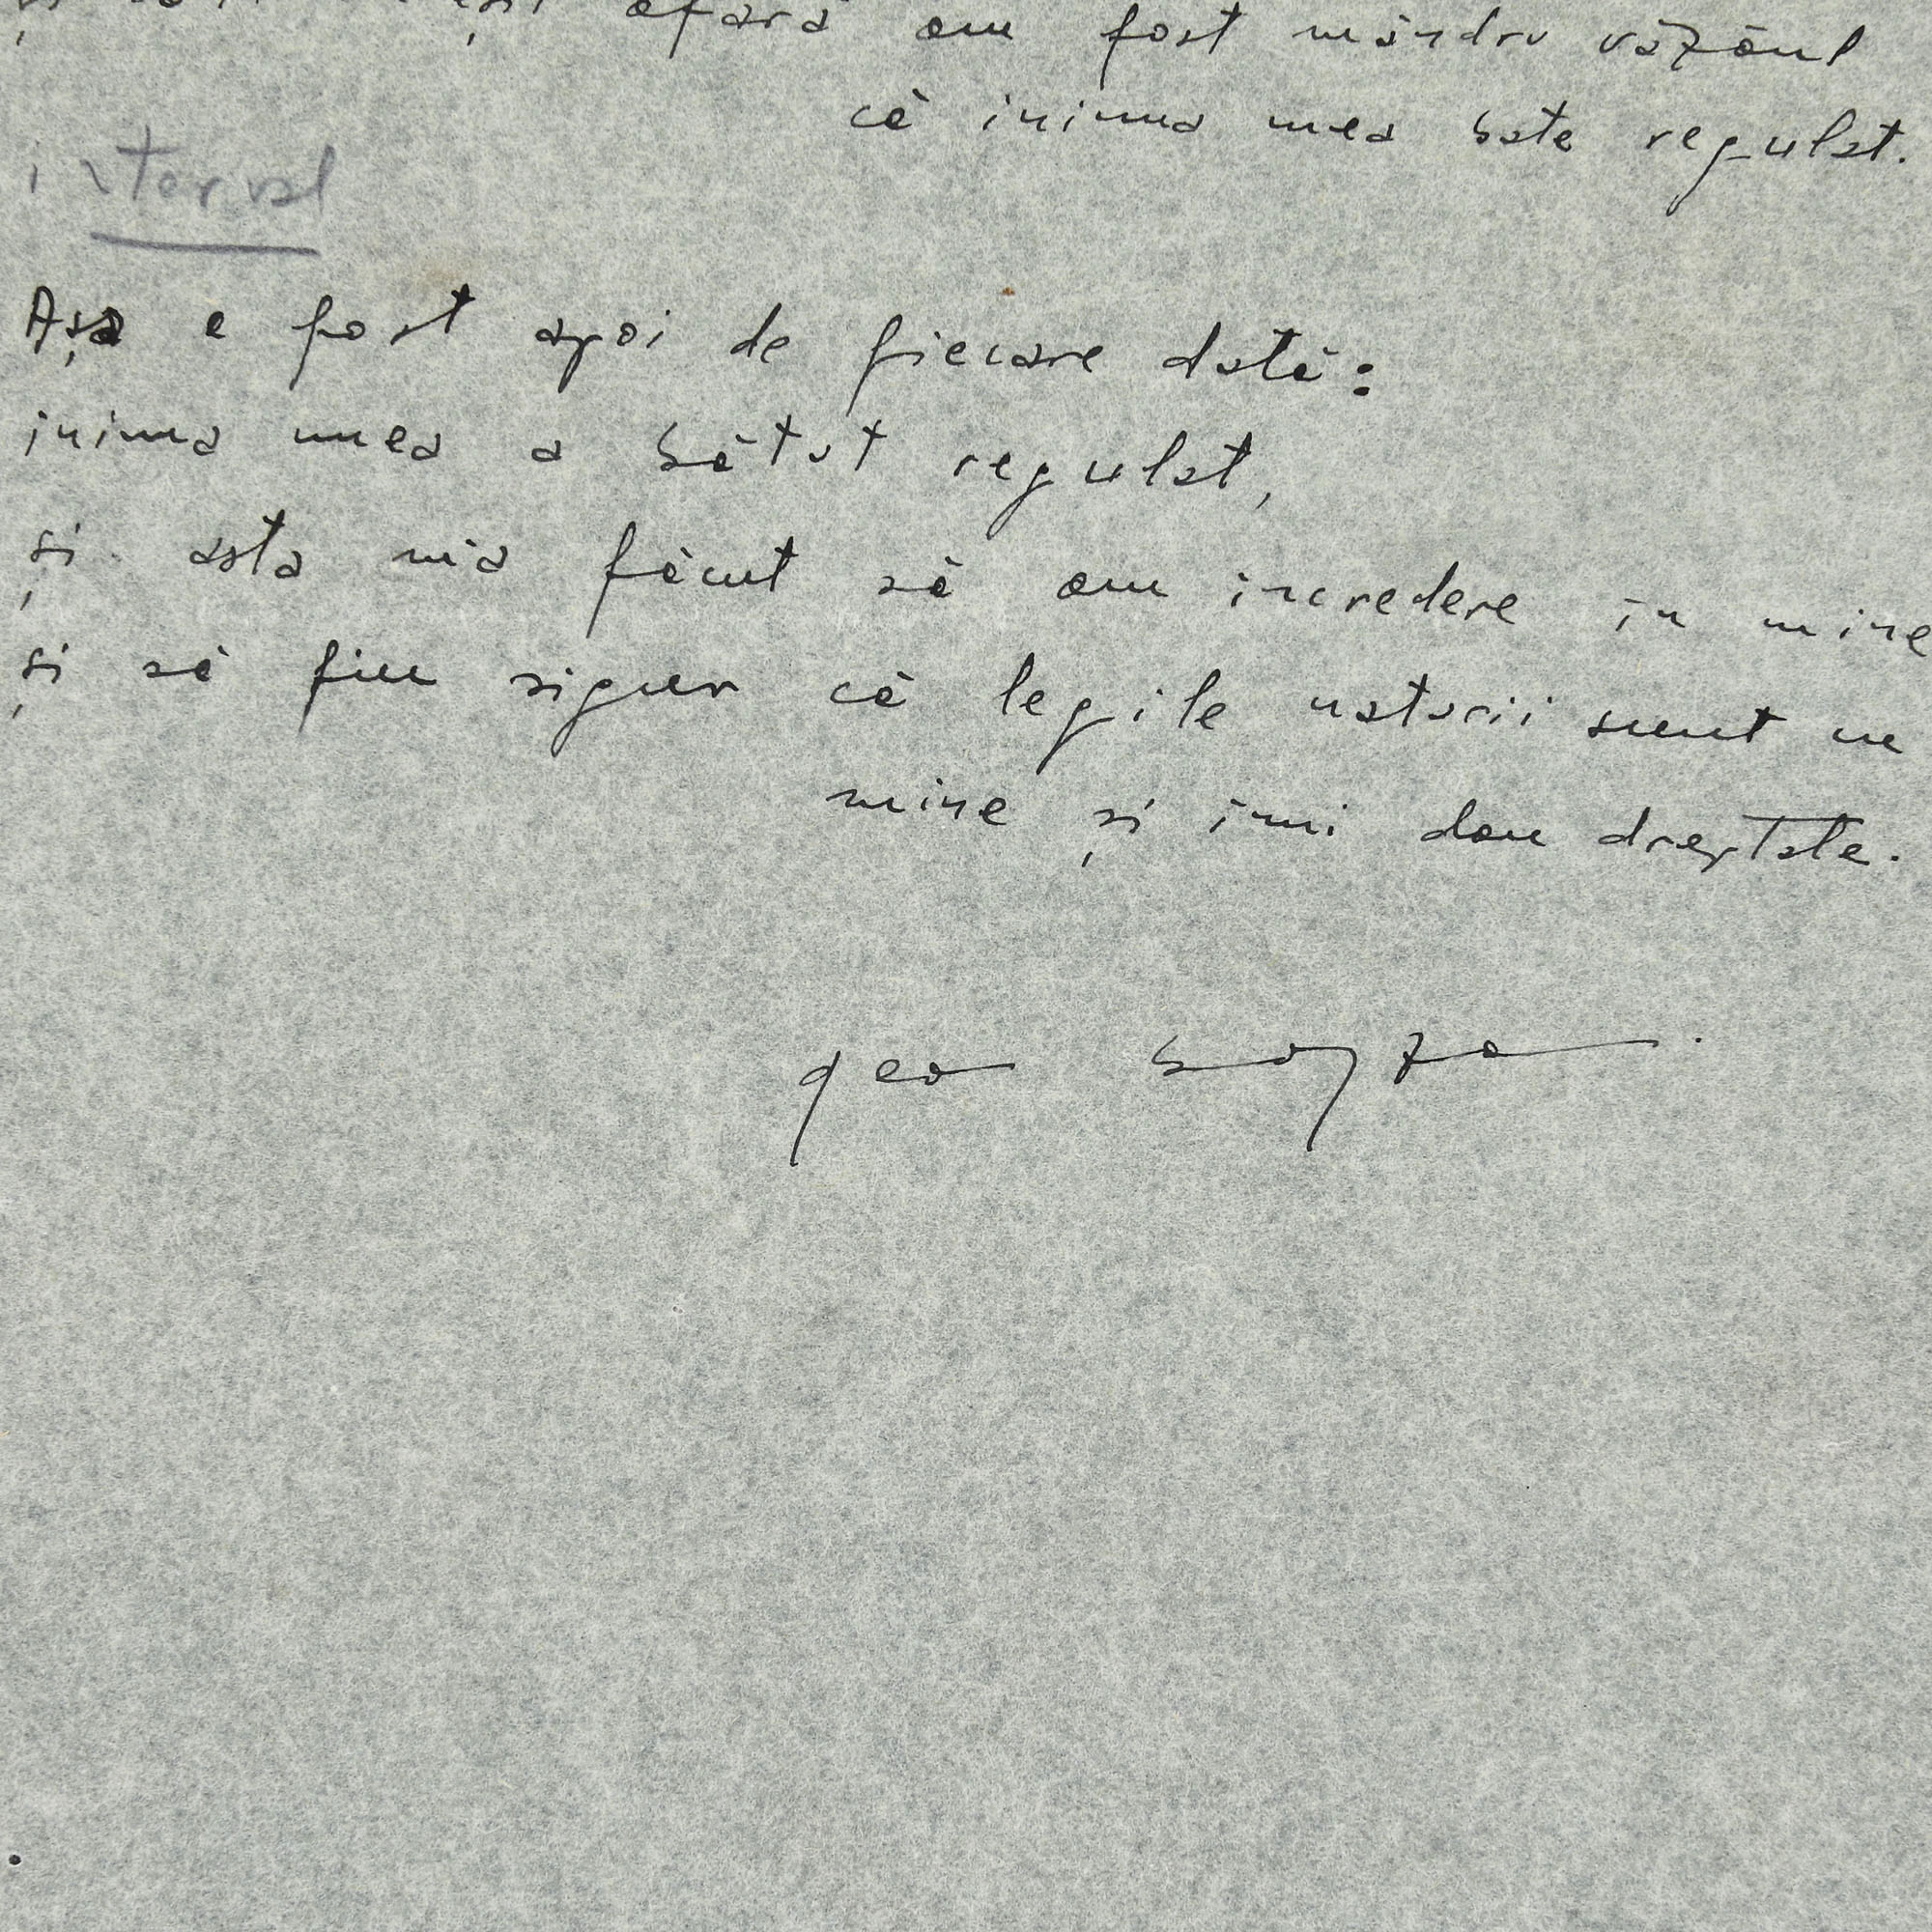 afară am fost mândru văzând
că inima mea bate regulat.
interval
Așa e fost apoi de fiecare dată:
inima mea a bătut regulat,
și asta mia făcut să am incredere in mine
și să fiu sigur că legile naturii sunt cu
mine și imi dau dreptate.
geo bogza